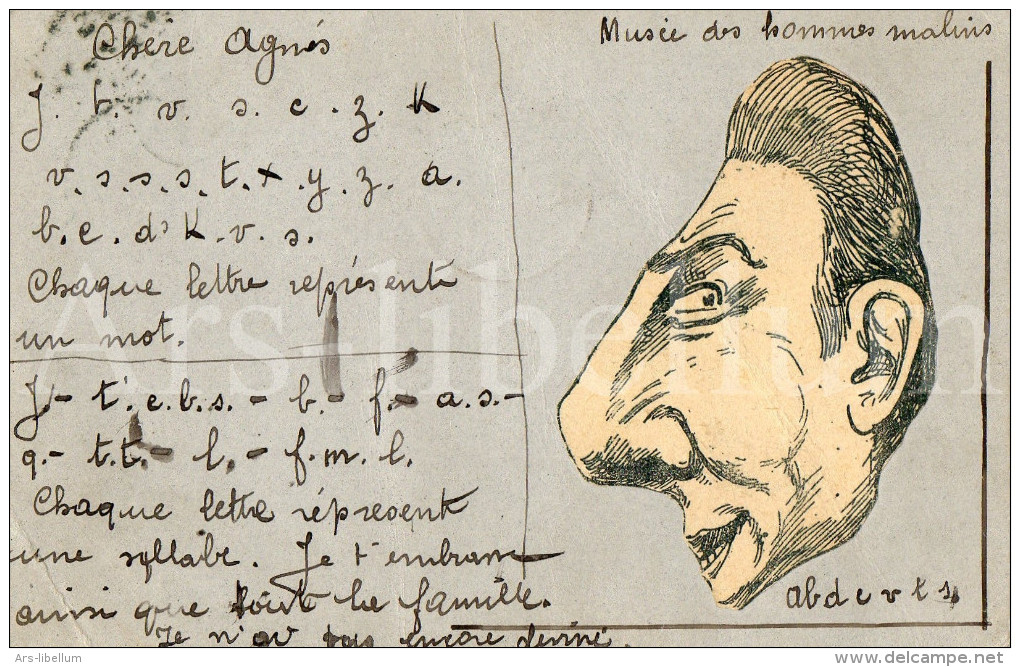 Chère Agnés
J. t. v. s. c. z. K
v. s. s. s. t. x. y. z. a.
b. c. d' K. v. s.
Chaque lettre représente
un mot.
J - t'. e. b. s. - b. - f. - a. s. -
q. - t. t. - l. - f. m. l.
Chaque lettre représent
une syllabe. Je t'embrasse
ainsi que toute la famille.
Je n'ai pas encore deviné.
Musée des hommes malins
a b d c v t s
Ars-libellum
Ars-libellum
delcampe.net